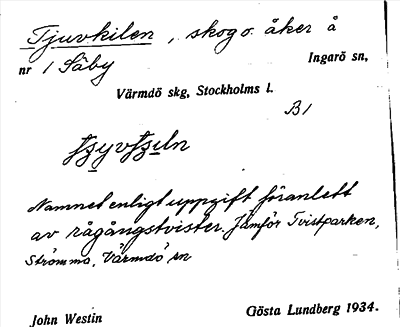 Tjuvkilen, skog o. åker å
nr 1 Säby Ingarö sn,
Värmdö skg, Stockholms l.
B1
Namnet enligt uppgift föranlett
av rågångstvister. Jämför Tvistparken,
Strömma, Värmdö sn
John Westin Gösta Lundberg 1934.